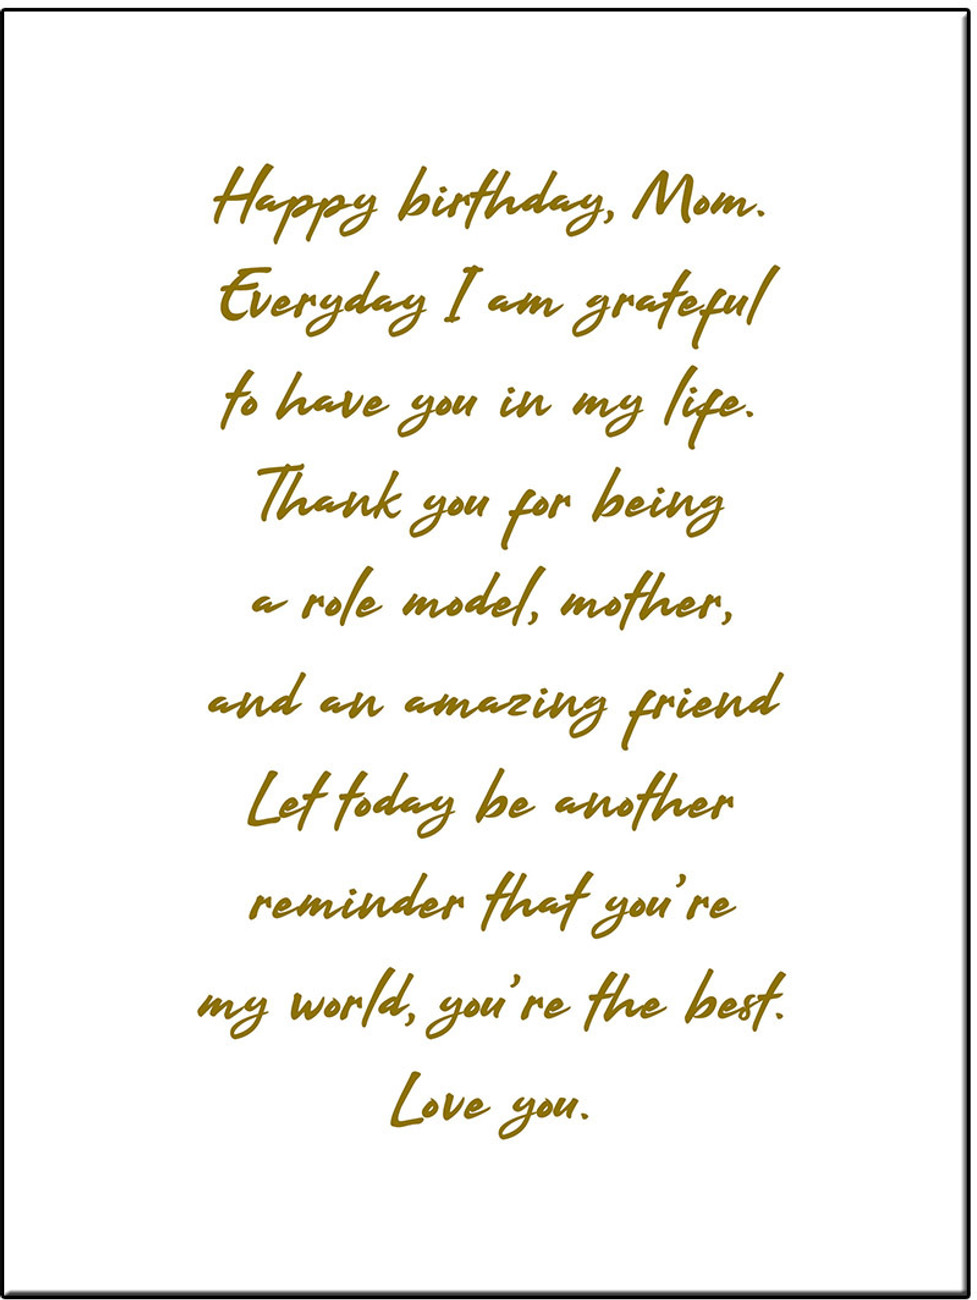 Happy birthday, Mom.
Everyday I am grateful
to have you in my life.
Thank you for being
a role model, mother,
and an amazing friend
Let today be another
reminder that you're
my world, you're the best.
Love you.